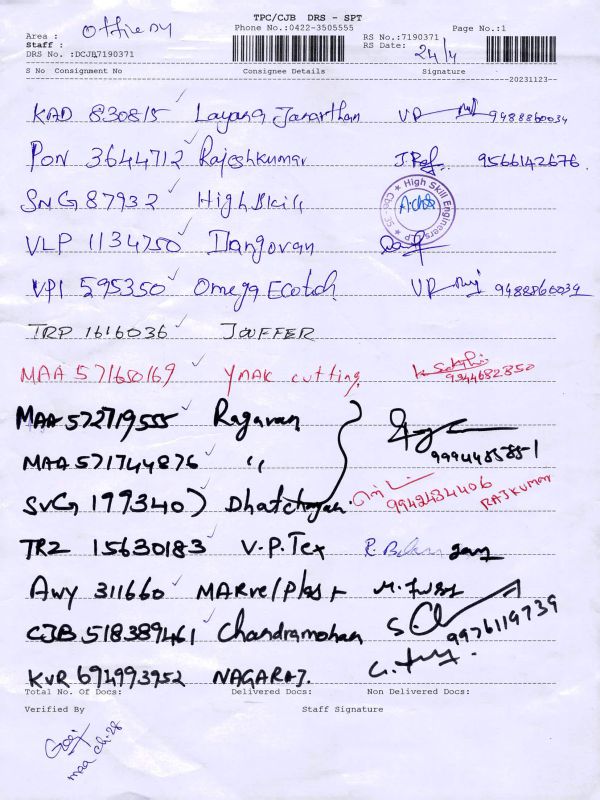 TPC/CJB DRS - SPT
Area : Phone No.:0422-3505555 RS No.:7190371 Page No.:1
Staff : RS Date: 24/4
DRS No. :DCJB7190371
S No Consignment No Consignee Details Signature
20231123
KAD 830815 ✓ Layana Janarthan VR 9488860034
PON 3644712 ✓ Rajeshkumar J Raf 9566142676
SNG 87932 ✓ High Skill High Skill Engineers
VLP 1134750 ✓ Ilangovan
VPI 595350 ✓ Omega Ecotch VR 9488860034
TRP 1616036 ✓ JOUFFER
MAA 571650169 ✓ YMAK cutting 9944682350
MAA 572719555 ✓ Ragavan 9994485885-1
MAA 571744876 ✓ "
SVG 199340 9942434406 RAJKUMAR
TRZ 15630183 ✓ V.P.Tex
AWY 311660 ✓ MARvel Plast
CJB 518389461 ✓ Chandramohan 9976119739
KVR 694993952 NAGARAJ.
Total No. Of Docs: Delivered Docs: Non Delivered Docs:
Verified By Staff Signature
maa ch-28